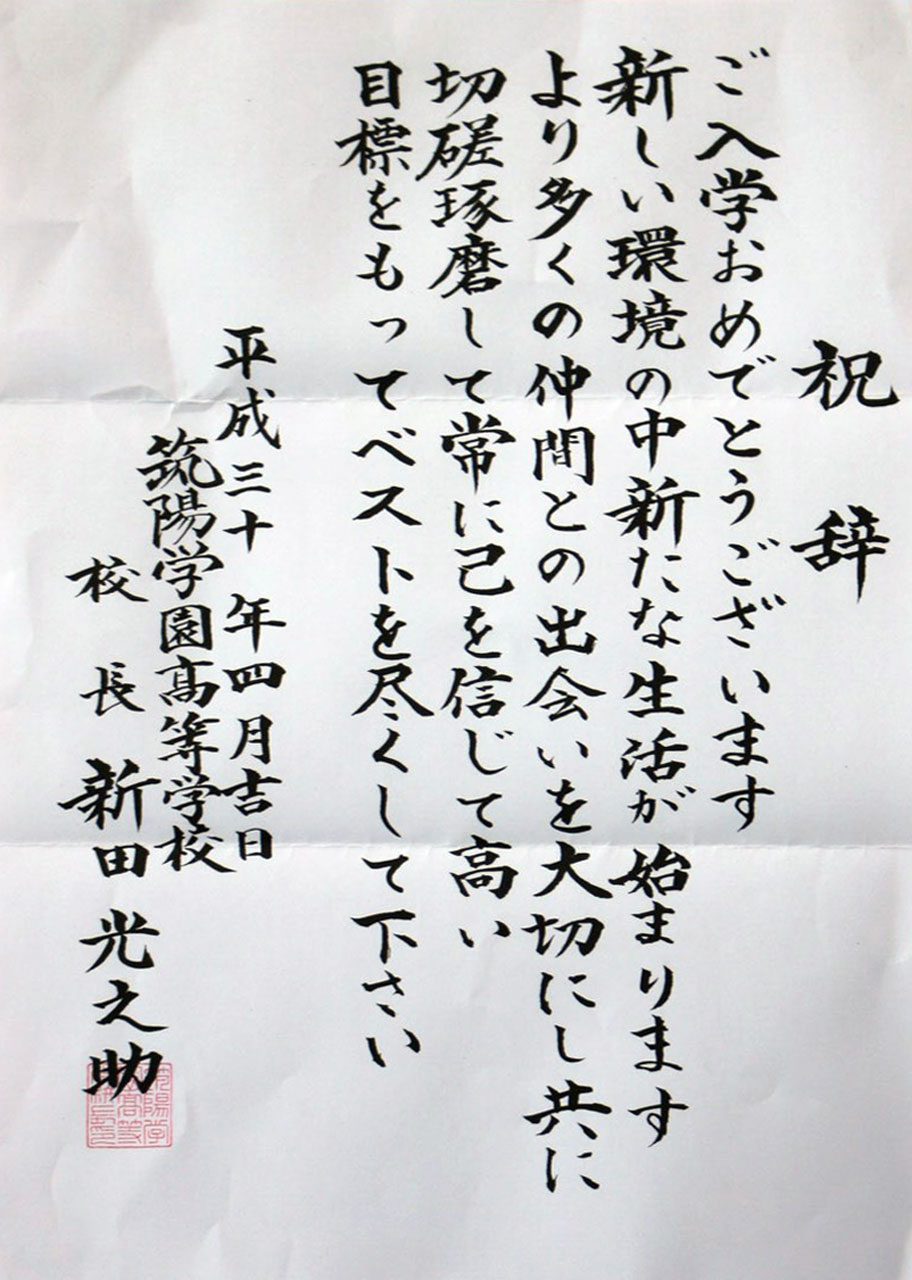 祝辞
ご入学おめでとうございます
新しい環境の中新たな生活が始まります
より多くの仲間との出会いを大切にし共に
切磋琢磨して常に己を信じて高い
目標をもってベストを尽くして下さい
平成三十年四月吉日
筑陽学園髙等学校
校長新田光之助